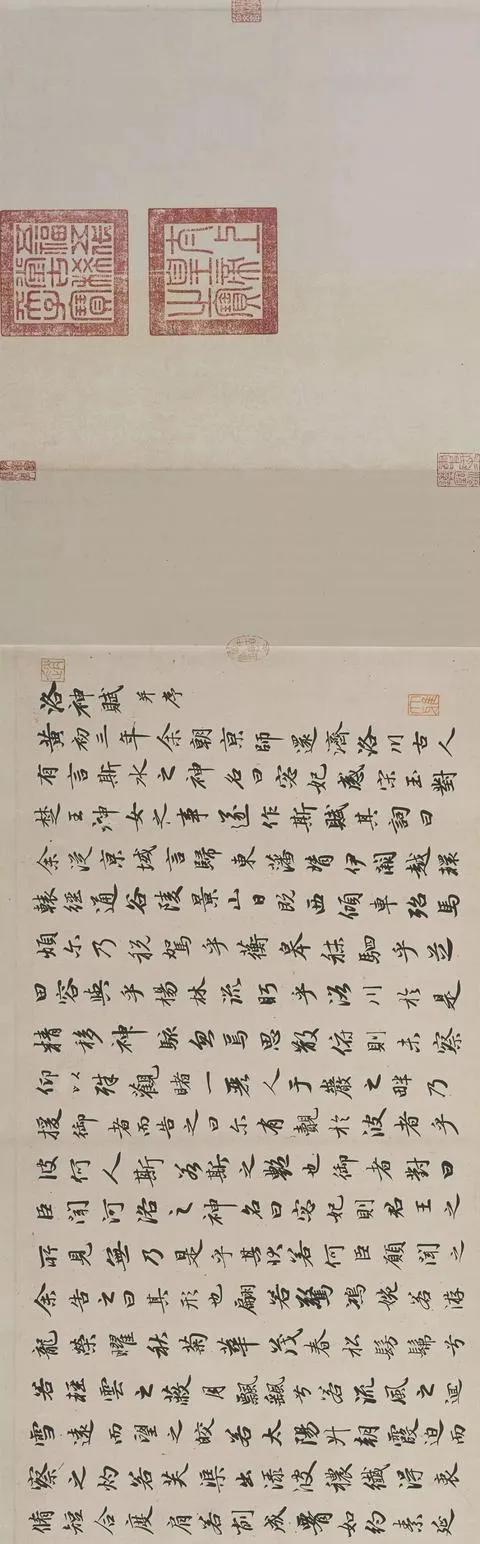 太上皇帝之寶
五福五代堂古稀天子寶
洛神賦 并序
黃初三年余朝京師還濟洛川古人
有言斯水之神名曰宓妃感宋玉對
楚王神女之事遂作斯賦其詞曰
余從京城言歸東藩背伊闕越轘
轅經通谷陵景山日既西傾車殆馬
煩尔乃稅駕乎蘅皋秣駟乎芝
田容與乎楊林流眄乎洛川於是
精移神駭忽焉思散俯則未察
仰以殊觀睹一麗人于巖之畔乃
援御者而告之曰尔有覿於彼者乎
彼何人斯若斯之艷也御者對曰
臣聞河洛之神名曰宓妃則君王之
所見無乃是乎其狀若何臣願聞之
余告之曰其形也翩若驚鴻婉若游
龍榮曜秋菊華茂春松髣髴兮
若輕雲之蔽月飄颻兮若流風之迴
雪遠而望之皎若太陽升朝霞迫而
察之灼若芙渠出淥波襛纖得衷
脩短合度肩若削成腰如約素延